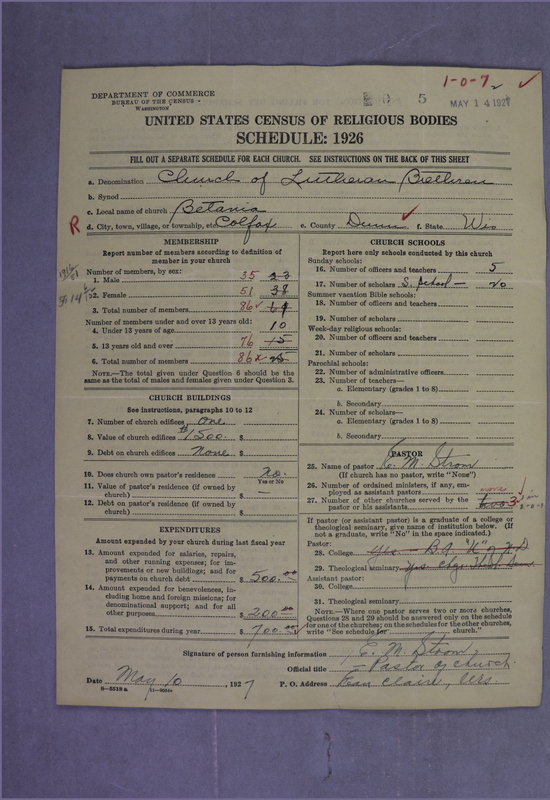 1-0-7
DEPARTMENT OF COMMERCE
BUREAU OF THE CENSUS
WASHINGTON
5
MAY 14 1927
UNITED STATES CENSUS OF RELIGIOUS BODIES
SCHEDULE: 1926
FILL OUT A SEPARATE SCHEDULE FOR EACH CHURCH. SEE INSTRUCTIONS ON THE BACK OF THIS SHEET
a. Denomination Church of Lutheran Brethren
b. Synod
c. Local name of church Betania
R d. City, town, village, or township, etc. Colfax e. County Dunn f. State Wis
MEMBERSHIP
Report number of members according to definition of
member in your church
Number of members, by sex:
1. Male 35 23
2. Female 51 38
3. Total number of members 86
Number of members under and over 13 years old:
4. Under 13 years of age 10
5. 13 years old and over 76 15
6. Total number of members 86 25
NOTE.—The total given under Question 6 should be the
same as the total of males and females given under Question 3.
CHURCH BUILDINGS
See instructions, paragraphs 10 to 12
7. Number of church edifices One
8. Value of church edifices $1500.
9. Debt on church edifices None. $
10. Does church own pastor's residence? No.
Yes or No
11. Value of pastor's residence (if owned by
church) $ —
12. Debt on pastor's residence (if owned by
church) $
EXPENDITURES
Amount expended by church during last fiscal year
13. Amount expended for salaries, repairs,
and other running expenses; for im-
provements or new buildings; and for
payments on church debt $ 500.00
14. Amount expended for benevolences, in-
cluding home and foreign missions; for
denominational support; and for all
other purposes $ 200.00
15. Total expenditures during year $ 700.00
CHURCH SCHOOLS
Report here only schools conducted by this church
Sunday schools:
16. Number of officers and teachers 5
17. Number of scholars S. School — 20
Summer vacation Bible schools:
18. Number of officers and teachers
19. Number of scholars
Week-day religious schools:
20. Number of officers and teachers
21. Number of scholars
Parochial schools:
22. Number of administrative officers
23. Number of teachers—
a. Elementary (grades 1 to 8)
b. Secondary
24. Number of scholars—
a. Elementary (grades 1 to 8)
b. Secondary
PASTOR
25. Name of pastor E. M. Strom
(If church has no pastor, write "None")
26. Number of ordained ministers, if any, em-
ployed as assistant pastors none
27. Number of other churches served by the
pastor or his assistants 3
If pastor (or assistant pastor) is a graduate of a college or
theological seminary, give name of institution below. (If
not a graduate, write "No" in the space indicated.)
Pastor:
28. College yes — B.A. "U" of N.D
29. Theological seminary yes
Assistant pastor:
30. College
31. Theological seminary
NOTE.—Where one pastor serves two or more churches,
Questions 28 and 29 should be answered only on the schedule
for one of the churches; on the schedules for the other churches,
write "See schedule for church."
Signature of person furnishing information E. M. Strom
Official title Pastor of church.
Date May 10, 1927 P. O. Address Eau Claire, Wis.
8-5318a